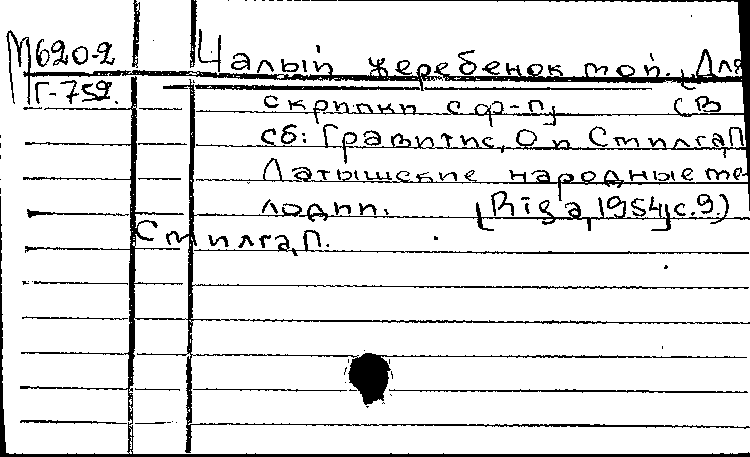 М620-2 Чалый жеребенок мой. [Для
Г-752.
скрипки с ф-п] (В
сб: Гравитис, О и Стилга, П
Латышские народные ме-
лодии. [Riga, 1954] с.9.)
Стилга, П.